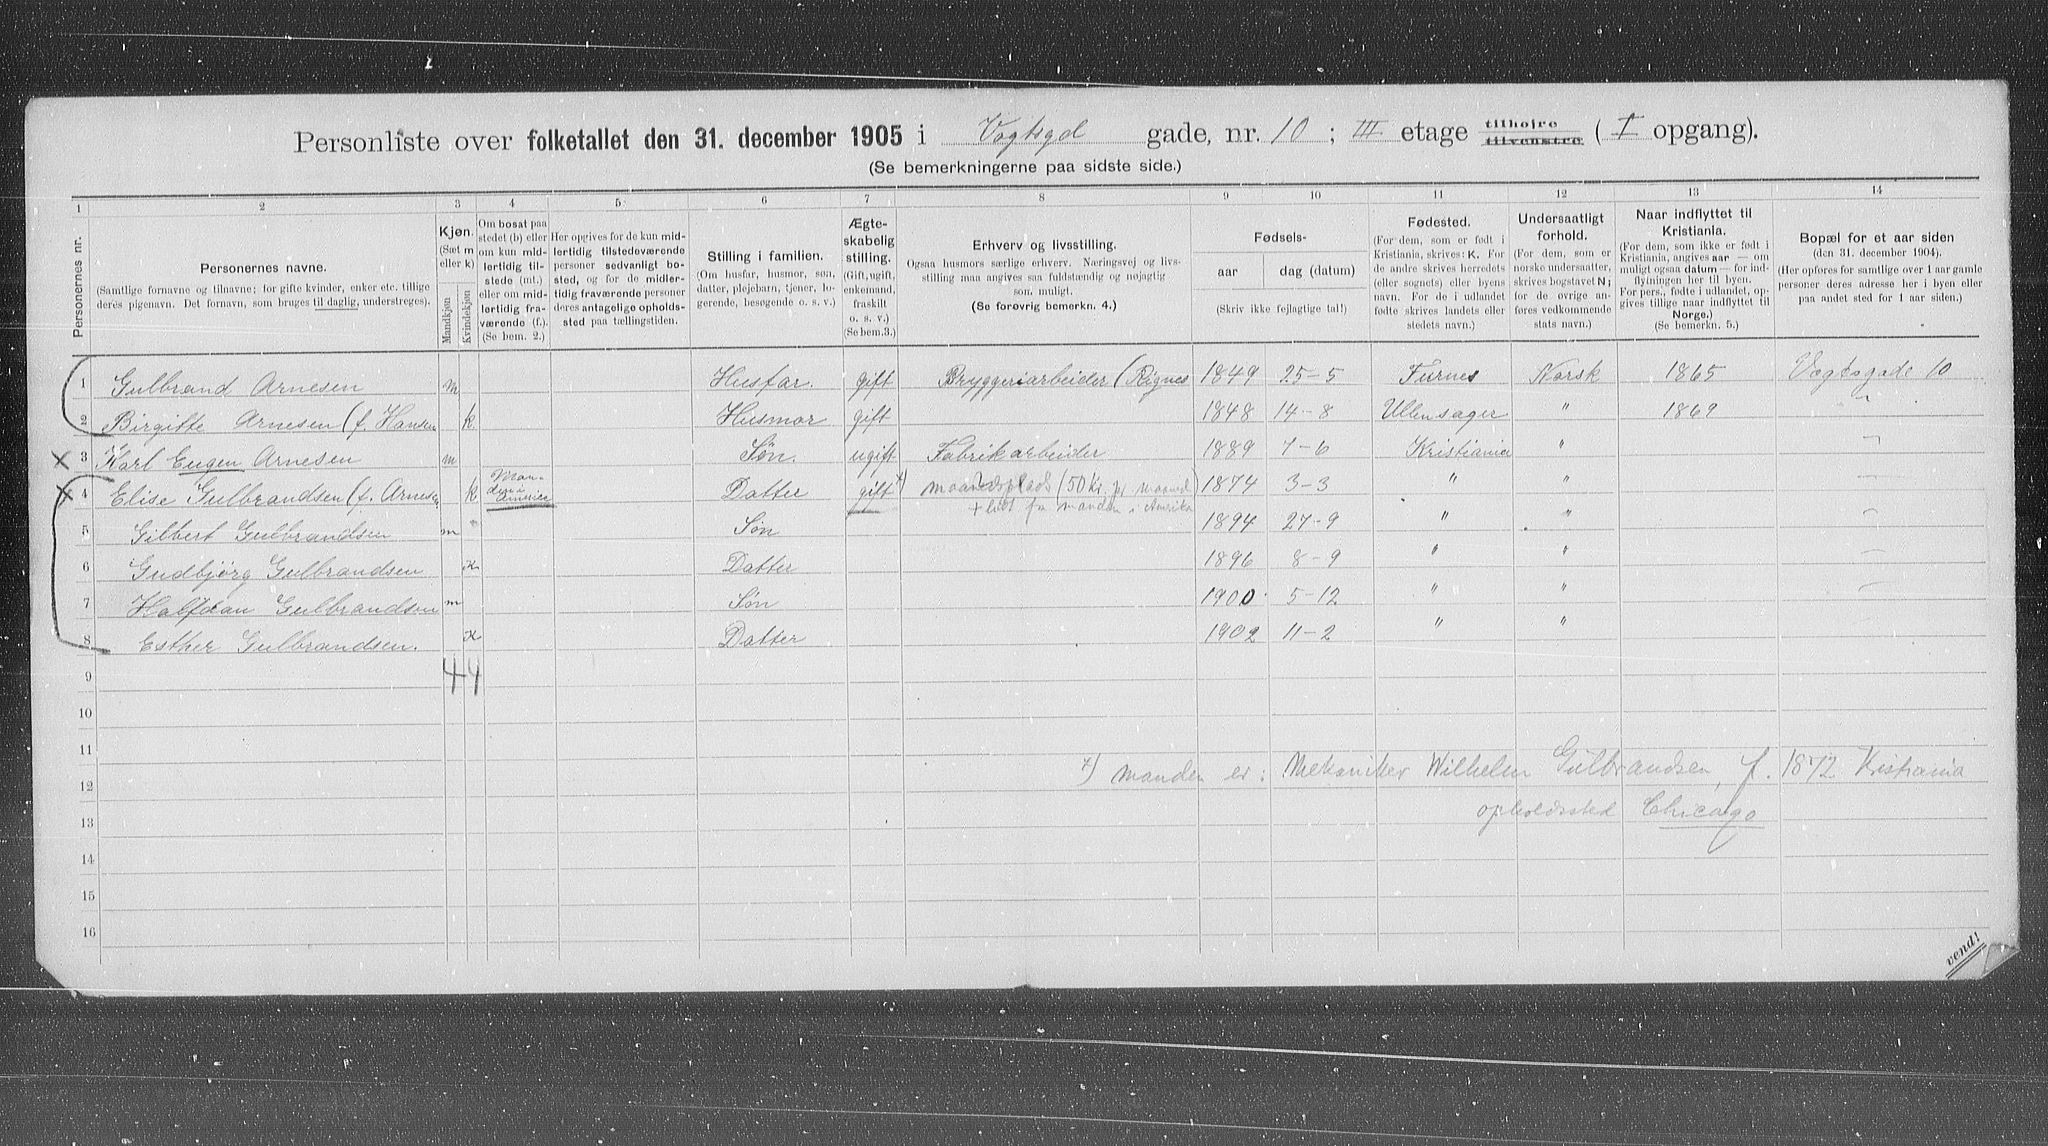 Personliste over folketallet den 31. december 1905 i Vogtsgd gade, nr. 10 ; III etage tilhøjre tilvenstre ( I opgang).
(Se bemerkningerne paa sidste side.)
1 2 3 4 5 6 7 8 9 10 11 12 13 14
Personernes nr.
Personernes navne.
(Samtlige fornavne og tilnavne; for gifte kvinder, enker etc. tillige
deres pigenavn. Det fornavn, som bruges til daglig, understreges).
Kjøn.
(Sæt m
eller k)
Mandkjøn
Kvindekjøn
Om bosat paa
stedet (b) eller
om kun mid-
lertidig til-
stede (mt.)
eller om mid-
lertidig fra-
værende (f.).
(Se bem. 2.)
Her opgives for de kun mid-
lertidig tilstedeværende
personer sedvanlig bo-
sted, og for de midler-
tidig fraværende personer
deres antagelige opholds-
sted paa tællingstiden.
Stilling i familien.
(Om husfar, husmor, søn,
datter, plejebarn, tjener, lo-
gerende, besøgende o. s. v.)
Ægte-
skabelig
stilling.
(Gift, ugift,
enkemand,
fraskilt
o. s. v.)
(Se bem.3.)
Erhverv og livsstilling.
Ogsaa husmors særlige erhverv. Næringsvej og livs-
stilling maa angives saa fuldstændig og nøjagtig
som muligt.
(Se forøvrig bemerkn. 4.)
Fødsels-
aar dag (datum)
(Skriv ikke fejlagtige tal!)
Fødested.
(For dem, som er født i
Kristiania, skrives: K. For
de andre skrives herredets
(eller sognets) eller byens
navn. For de i udlandet
fødte skrives landets eller
stedets navn.)
Undersaatligt
forhold.
(For dem, som er
norske undersaatter,
skrives bogstavet N;
for de øvrige an-
føres vedkommende
stats navn.)
Naar indflyttet til
Kristiania.
(For dem, som ikke er født i
Kristiania, angives aar — om
muligt ogsaa datum — for ind-
flyttningen her til byen.
For pers., født i udlandet, op-
gives tillige naar indflyttet til
Norge.)
(Se bemerkn. 5.)
Bopæl for et aar siden
(den 31. december 1904).
(Her opføres for samtlige over 1 aar gamle
personer deres adresse her i byen eller
paa andet sted for 1 aar siden.)
1 Gulbrand Arnesen m Husfar. gift Bryggeriarbeider (Rignes 1849 25-5 Furnes Norsk 1865 Vogtsgade 10
2 Birgitte Arnesen (f. Hansen k Husmor gift 1848 14-8 Ullensager " 1869 "
3 Karl Eugen Arnesen m Søn. ugift Fabrikarbeider 1889 7-6 Kristiania " —
4 Elise Gulbrandsen (f. Arnesen k Man- den i Amerika Datter gift x) maanedsplads (50 Kr. pr maaned) 1874 3-3 " " —
+ lidt fra manden i Amerika
5 Gilbert Gulbrandsen m Søn 1894 27-9 " " —
6 Gudbjörg Gulbrandsen k Datter 1896 8-9 " " —
7 Halfdan Gulbrandsen m Søn 1900 5-12 " " —
8 Esther Gulbrandsen. k Datter 1902 11-2 " "
4 4
9
10
11
x) manden er: Mekaniker Wilhelm Gulbrandsen, f. 1872 Kristiania
12
opholdssted Chicago
13
14
15
16
vend!